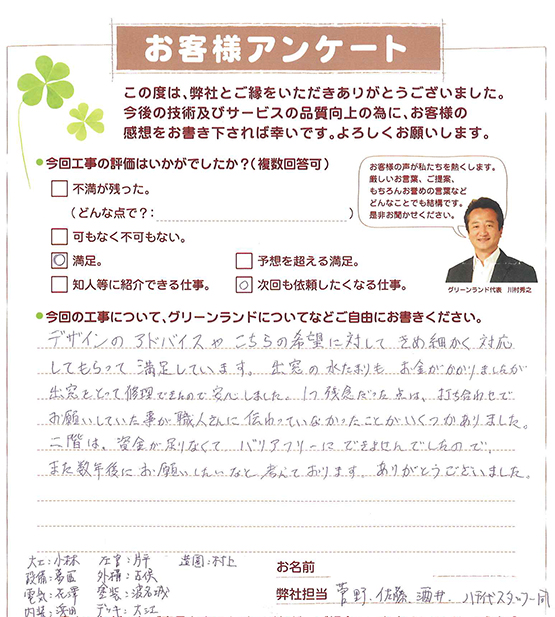 お客様アンケート
この度は、弊社とご縁をいただきありがとうございました。
今後の技術及びサービスの品質向上の為に、お客様の
感想をお書き下されば幸いです。よろしくお願いします。
●今回工事の評価はいかがでしたか？（複数回答可）
不満が残った。
（どんな点で？：　）
可もなく不可もない。
満足。
予想を超える満足。
知人等に紹介できる仕事。
次回も依頼したくなる仕事。
お客様の声が私たちを熱くします。
厳しいお言葉、ご提案、
もちろんお誉めの言葉など
どんなことでも結構です。
是非お聞かせください。
グリーンランド代表　川村秀之
●今回の工事について、グリーンランドについてなどご自由にお書きください。
デザインのアドバイスやこちらの希望に対してきめ細かく対応
してもらって満足しています。出窓の水たまりもお金がかかりましたが
出窓をとって修理できたので安心しました。1つ残念だった点は、打ち合わせで
お願いしていた事が職人さんに伝わっていなかったことがいくつかありました。
二階は、資金が足りなくてバリアフリーにできませんでしたので、
また数年後にお願いしたいなと考えております。ありがとうございました。
大工：小林　左官：　造園：村上
設備：　外構：
電気：　塗装：
内装：　デッキ：大江
お名前
弊社担当　菅野、佐藤、酒井、スタッフ一同